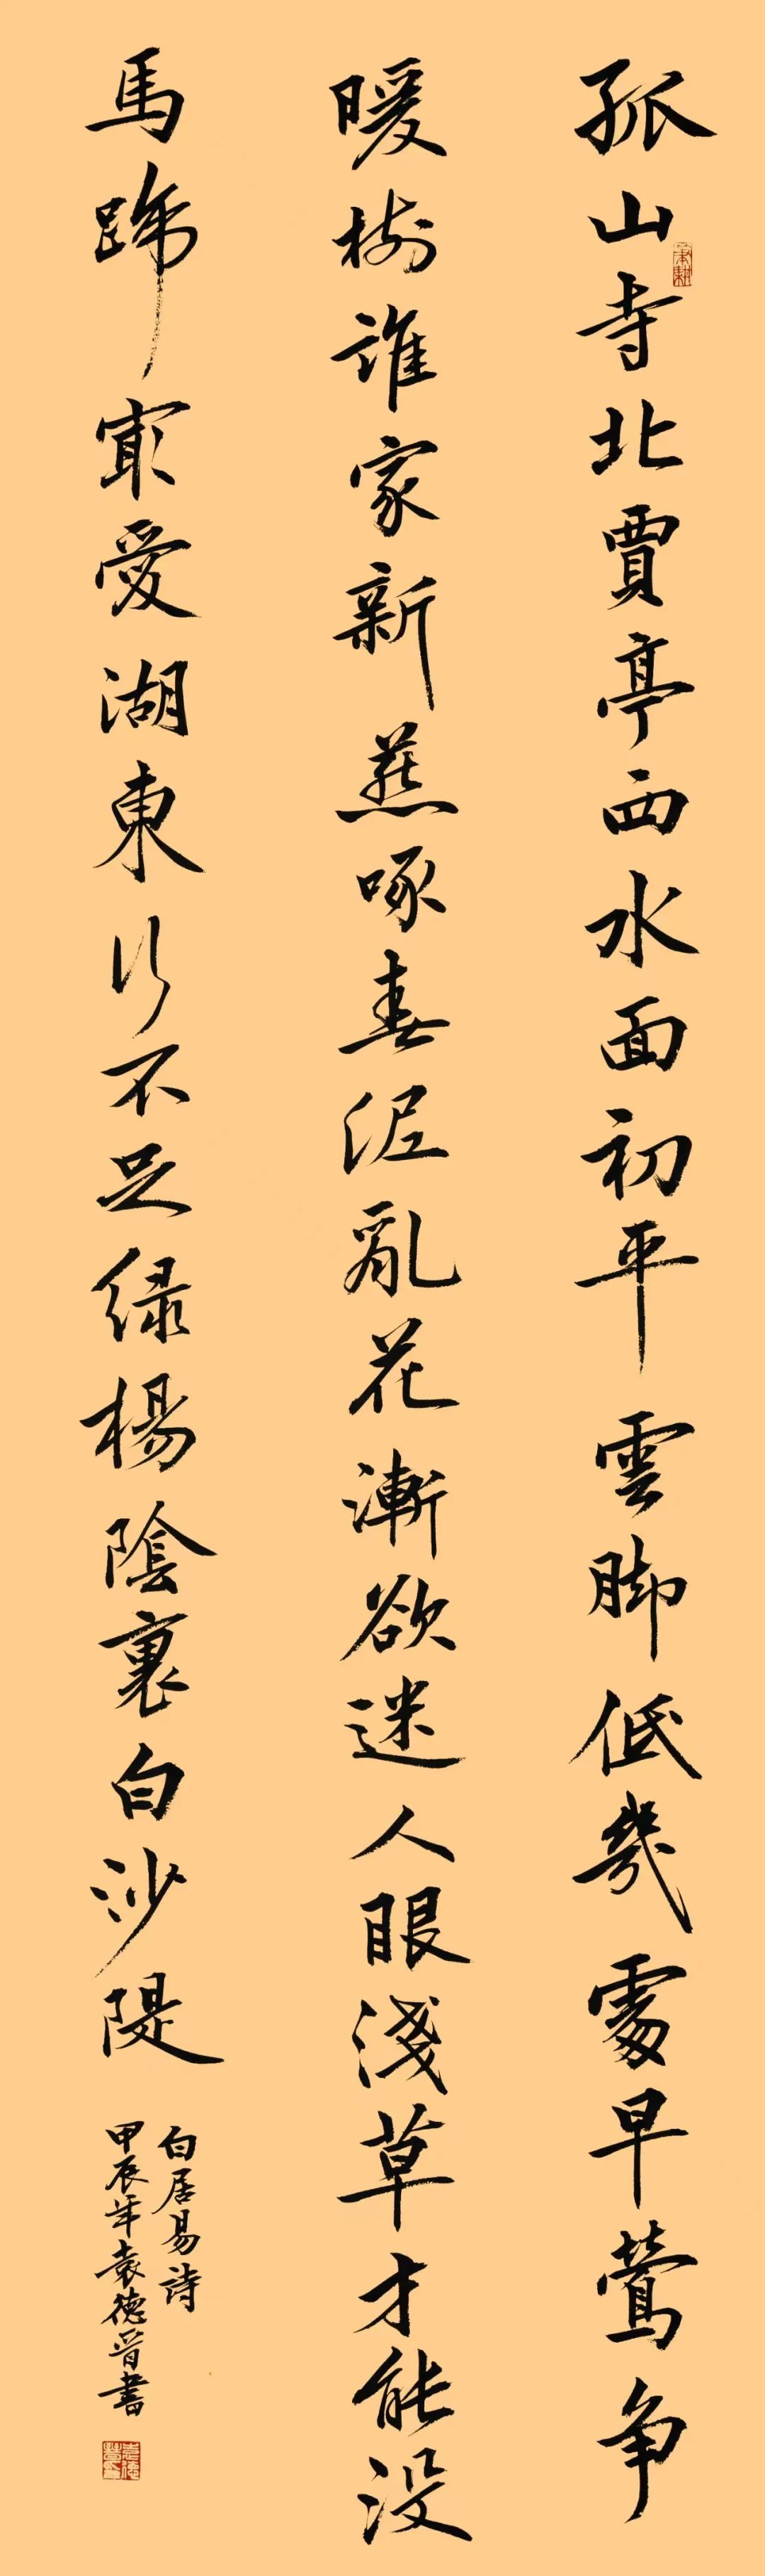 孤山寺北賈亭西水面初平雲脚低幾處早鶯争
暖樹誰家新燕啄春泥亂花漸欲迷人眼淺草才能没
馬蹄最愛湖東行不足緑楊陰裏白沙隄
白居易詩
甲辰年袁德晋書